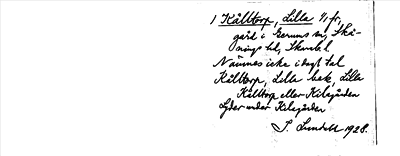 1 Källtorp, Lilla 1/1 fr,
gård i Gerums sn, Skå-
nings hd, Skarab. l.
Nämnes icke i dagl. tal
Källtorp, Lilla beb. Lilla
Källtorp eller Kilagården
Lyder under Kilagården
S. Lundahl 1928.